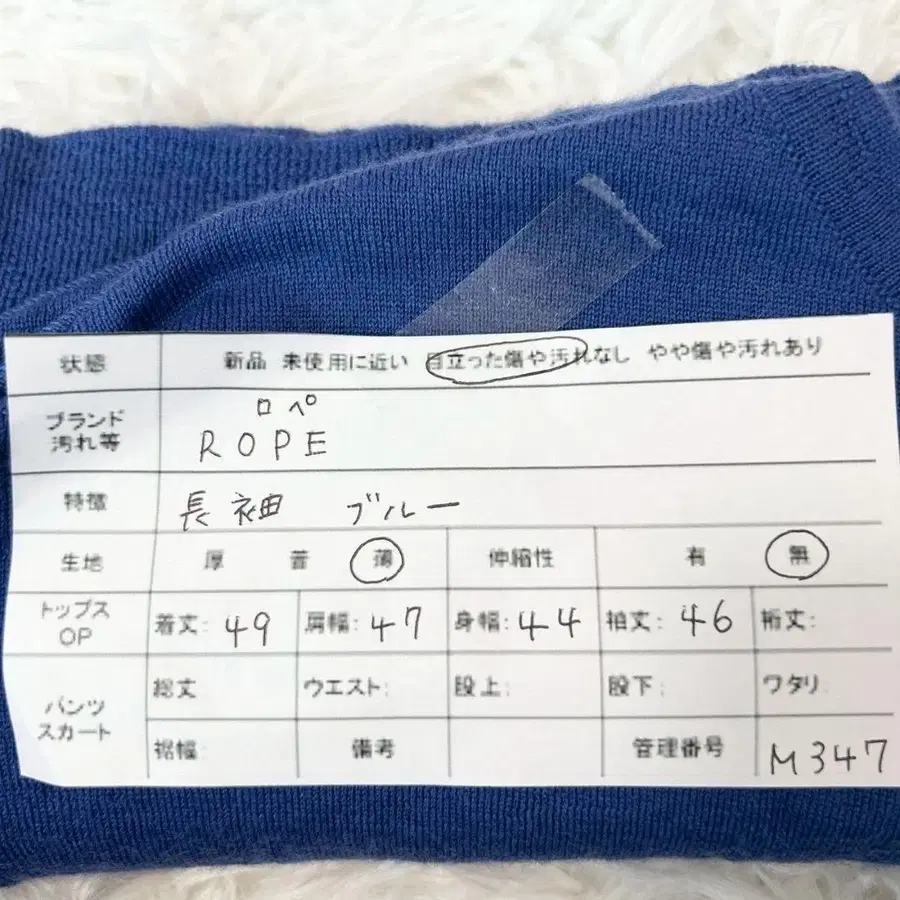 状態 新品 未使用に近い 目立った傷や汚れなし やや傷や汚れあり
ブランド 汚れ等 ロペ
ROPE
特徴 長袖 ブルー
生地 厚 普 薄 伸縮性 有 無
トップス OP 着丈: 49 肩幅: 47 身幅: 44 袖丈: 46 裄丈:
パンツ スカート 総丈 ウエスト: 股上: 股下: ワタリ:
裾幅: 備考 管理番号 M347